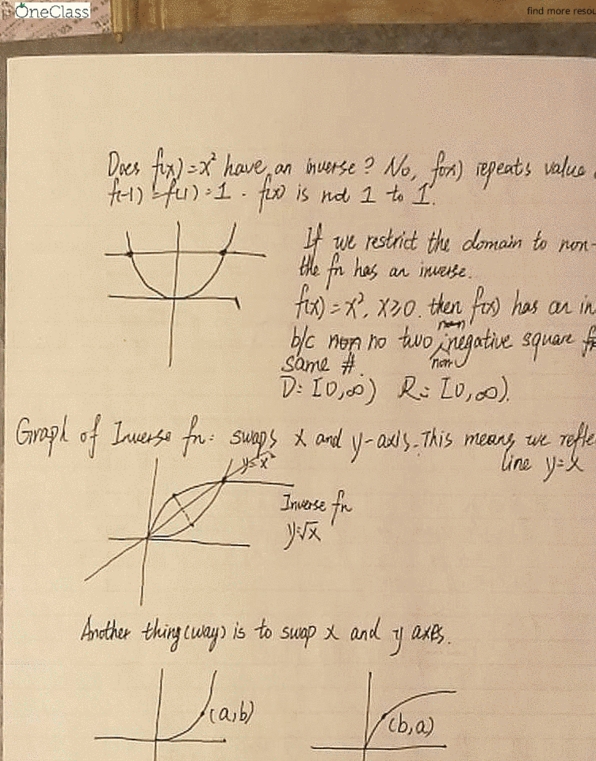 OneClass
find more resou
Does f(x)=x² have an inverse? No, f(x) repeats value
f(-1)=f(1)=1. f(x) is not 1 to 1.
If we restrict the domain to non-
the fn has an inverse.
f(x)=x², x≥0. then f(x) has an in
b/c no two non negative square
same #.
D: [0,∞) R: [0,∞).
Graph of Inverse fn: swaps x and y-axis. This means we refle
line y=x
y=x²
Inverse fn
y=√x
Another thing (way) is to swap x and y axes.
(a,b)
(b,a)